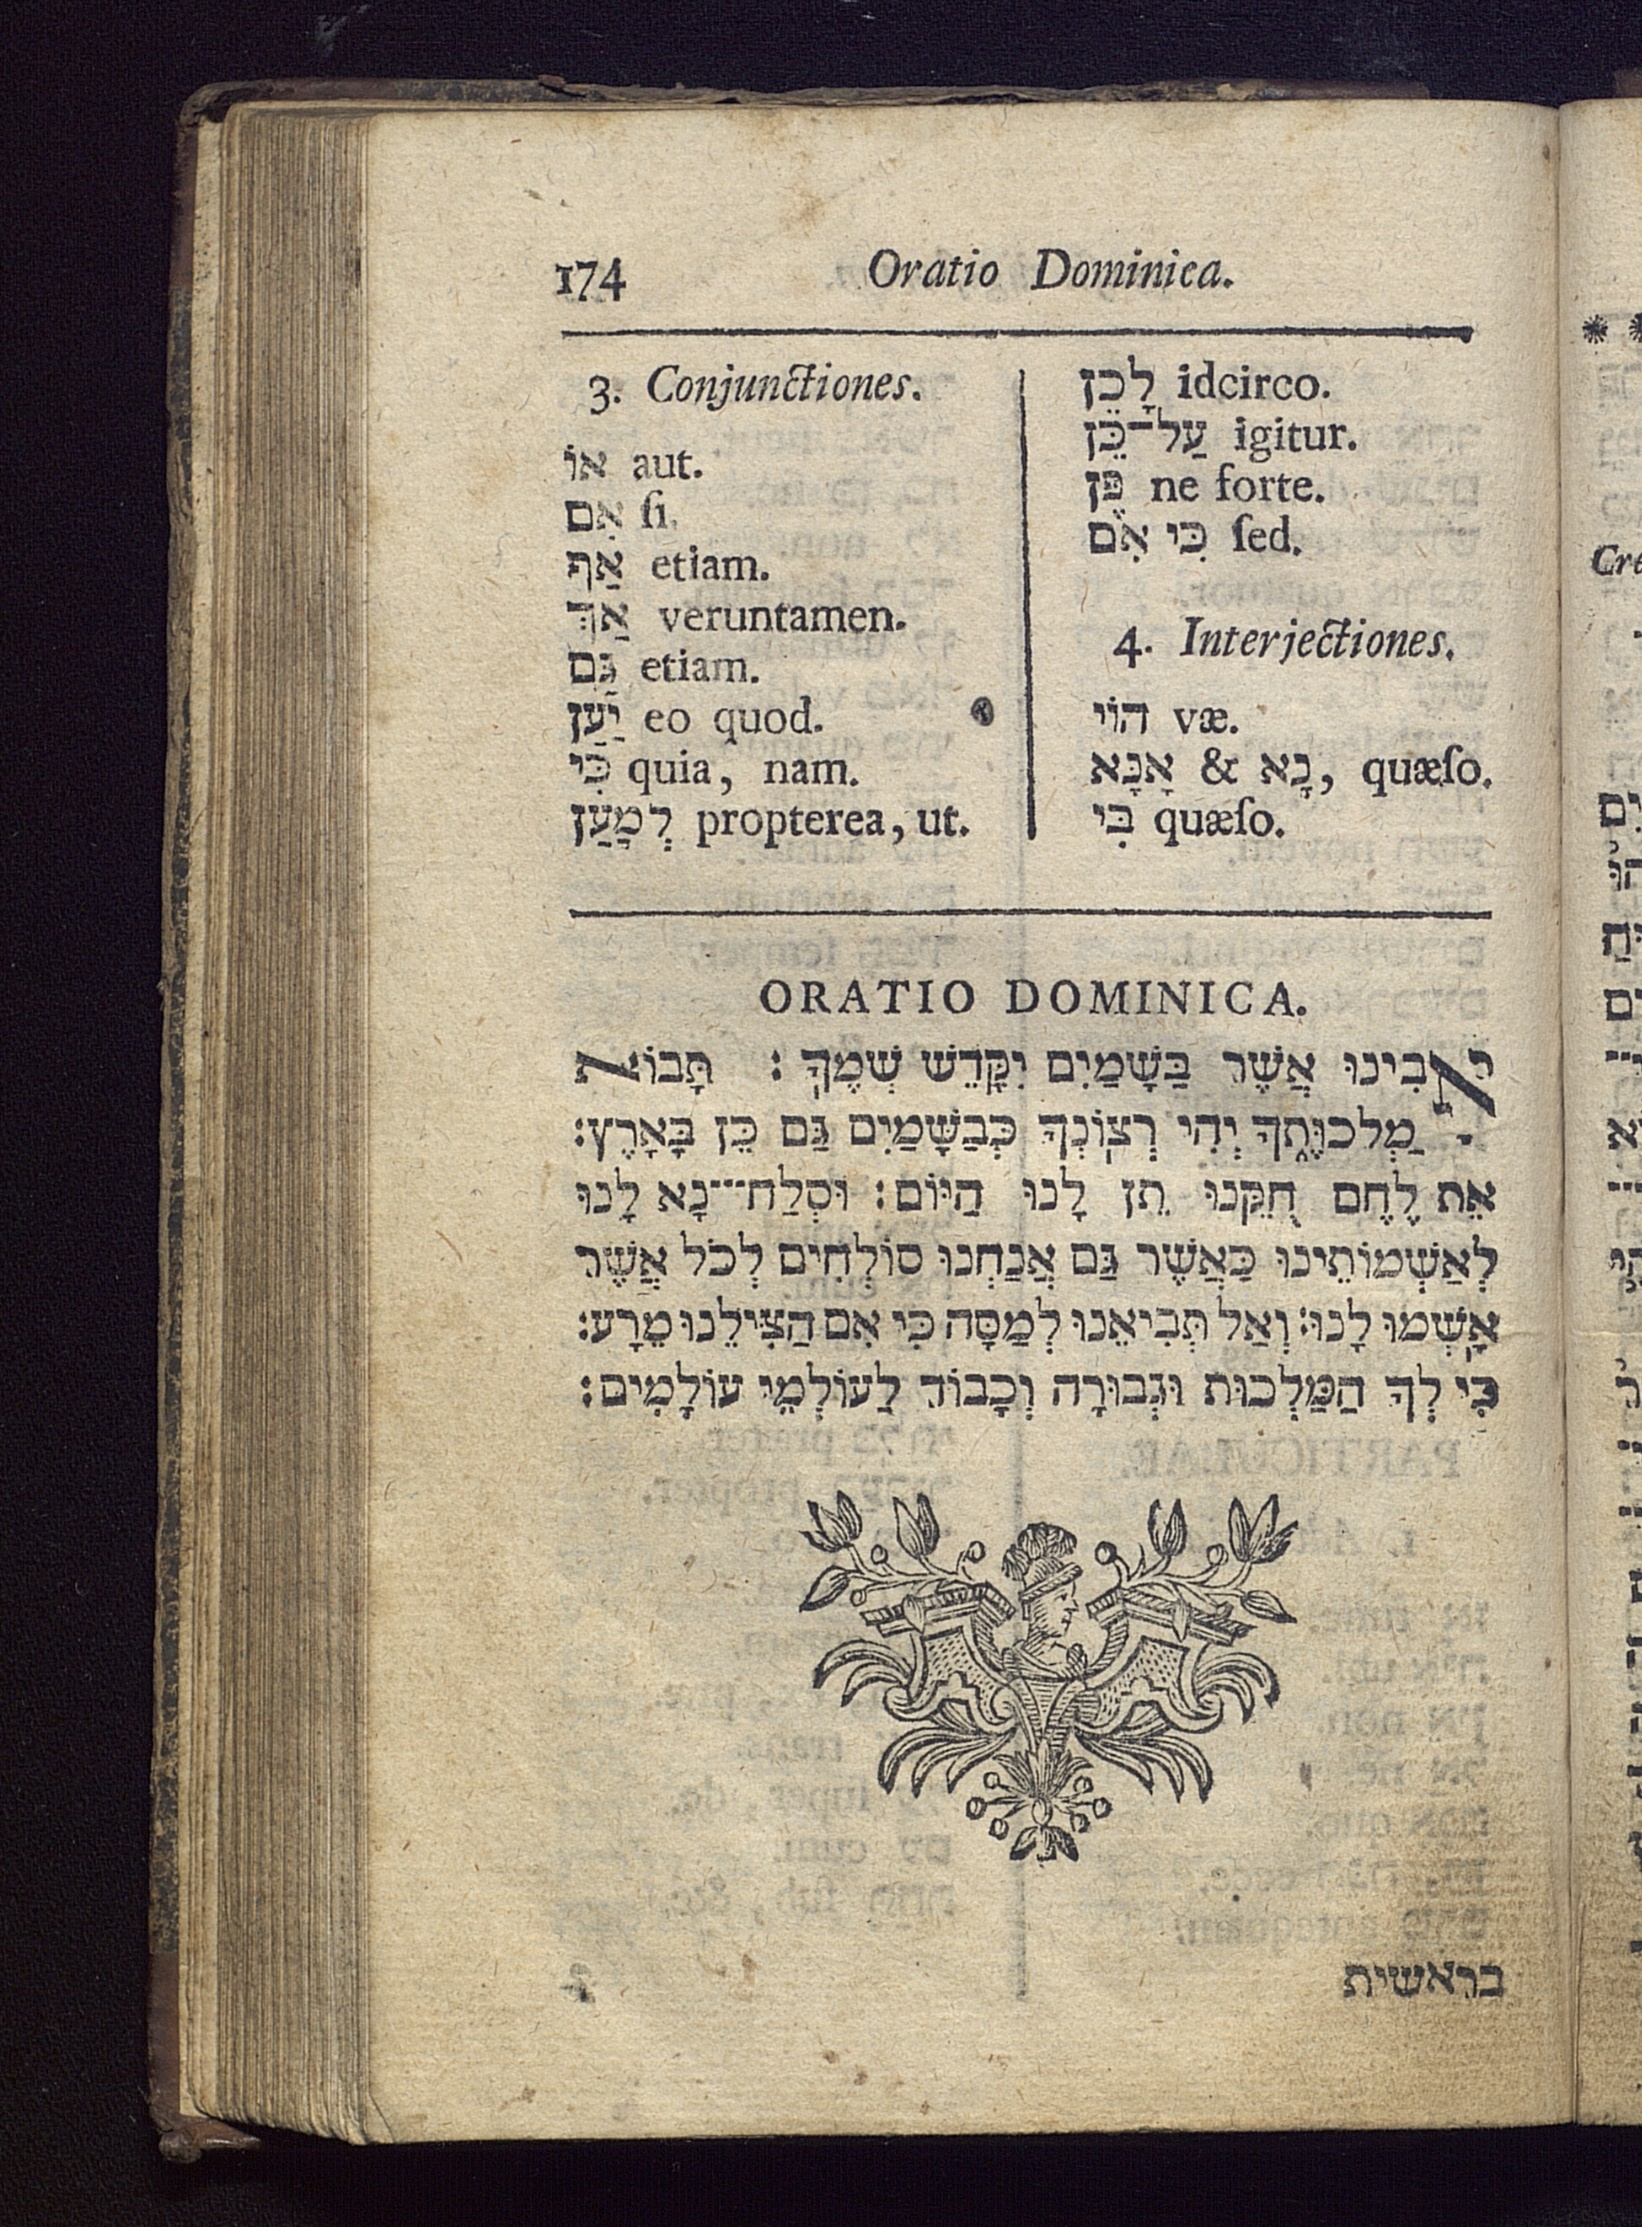 174 Oratio Dominica.
3. Conjunctiones.
אוֹ aut.
אִם ſi.
אַף etiam.
אַךְ veruntamen.
גַּם etiam.
יַעַן eo quod.
כִּי quia, nam.
לְמַעַן propterea, ut.
לָכֵן idcirco.
עַל־כֵּן igitur.
פֶּן ne forte.
כִּי אִם ſed.
4. Interjectiones.
הוֹי væ.
אָנָּא & נָא, quæſo.
בִּי quæſo.
ORATIO DOMINICA.
אָבִינוּ אֲשֶׁר בַּשָּׁמַיִם יִקָּדֵשׁ שְׁמֶךָ : תָּבוֹא
מַלְכוּתֶךָ יְהִי רְצוֹנְךָ כְּבַשָּׁמַיִם גַּם כֵּן בָּאָרֶץ:
אֵת לֶחֶם חֻקֵּנוּ תֵן לָנוּ הַיּוֹם: וּסְלַח־־נָא לָנוּ
לְאַשְׁמוֹתֵינוּ כַּאֲשֶׁר גַּם אֲנַחְנוּ סוֹלְחִים לְכֹל אֲשֶׁר
אָשְׁמוּ לָנוּ: וְאַל תְּבִיאֵנוּ לְמַסָּה כִּי אִם הַצִּילֵנוּ מֵרָע:
כִּי לְךָ הַמַּלְכוּת וּגְבוּרָה וְכָבוֹד לַעוֹלְמֵי עוֹלָמִים:
בראשית
Cre